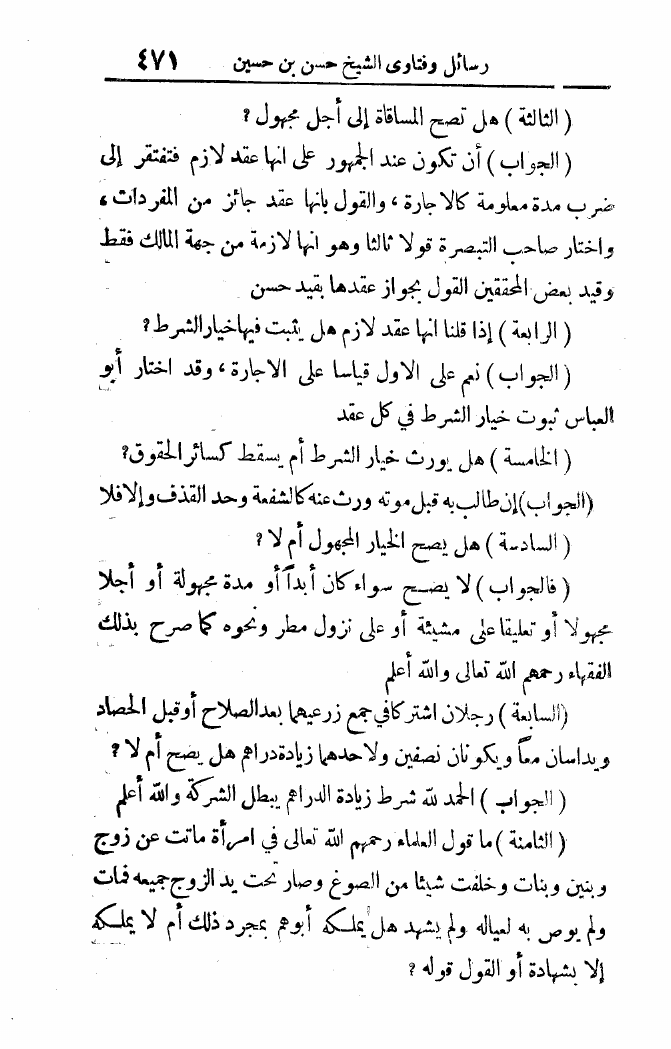 رسائل وفتاوى الشيخ حسن بن حسين ٤٧١
( الثالثة ) هل تصح المساقاة إلى أجل مجهول ؟
( الجواب ) أن تكون عند الجمهور على انها عقد لازم فتفتقر إلى
ضرب مدة معلومة كالاجارة ، والقول بانها عقد جائز من المفردات ،
واختار صاحب التبصرة قولا ثالثا وهو انها لازمة من جهة المالك فقط
وقيد بعض المحققين القول بجواز عقدها بقيد حسن
( الرابعة ) إذا قلنا انها عقد لازم هل يثبت فيها خيار الشرط ؟
( الجواب ) نعم على الاول قياسا على الاجارة ، وقد اختار أبو
العباس ثبوت خيار الشرط في كل عقد
( الخامسة ) هل يورث خيار الشرط أم يسقط كسائر الحقوق ؟
(الجواب) إن طالب به قبل موته ورث عنه كالشفعة وحد القذف وإلا فلا
( السادسة ) هل يصح الخيار المجهول أم لا ؟
( فالجواب ) لا يصح سواء كان أبداً أو مدة مجهولة أو أجلا
مجهولا أو تعليقا على مشيئة أو على نزول مطر ونحوه كما صرح بذلك
الفقهاء رحمهم الله تعالى والله أعلم
(السابعة ) رجلان اشتركا في جمع زرعيهما بعد الصلاح أو قبل الحصاد
ويداسان معاً ويكونان نصفين ولاحدهما زيادة دراهم هل يصح أم لا ؟
( الجواب ) الحمد لله شرط زيادة الدراهم يبطل الشركة والله أعلم
( الثامنة ) ما قول العلماء رحمهم الله تعالى في امرأة ماتت عن زوج
وبنين وبنات وخلفت شيئا من الصوغ وصار تحت يد الزوج جميعه فمات
ولم يوص به لعياله ولم يشهد هل يملكه أبوهم بمجرد ذلك أم لا يملكه
إلا بشهادة أو القول قوله ؟